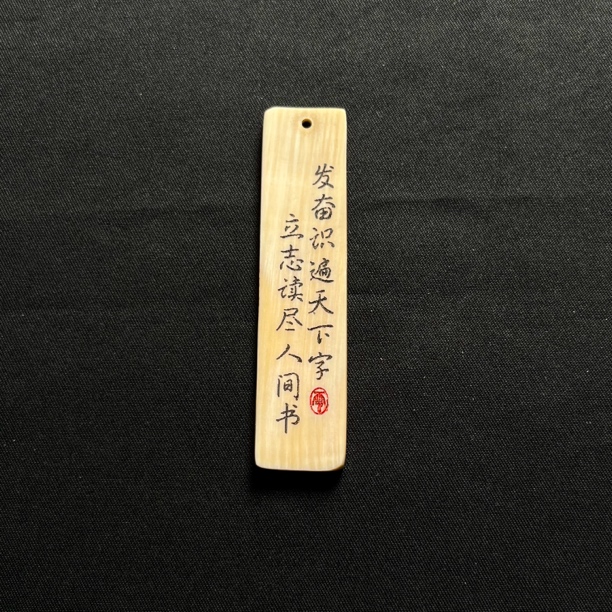 发奋识遍天下字
立志读尽人间书